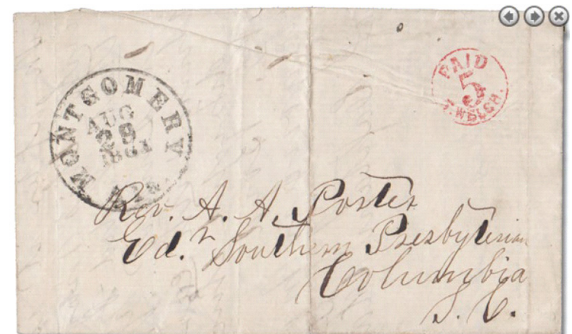 MONTGOMERY
AUG
29
1861
PAID
5
T. WELCH.
Rev. A. A. Porter
Ed.r Southern Presbyterian
Columbia
S. C.